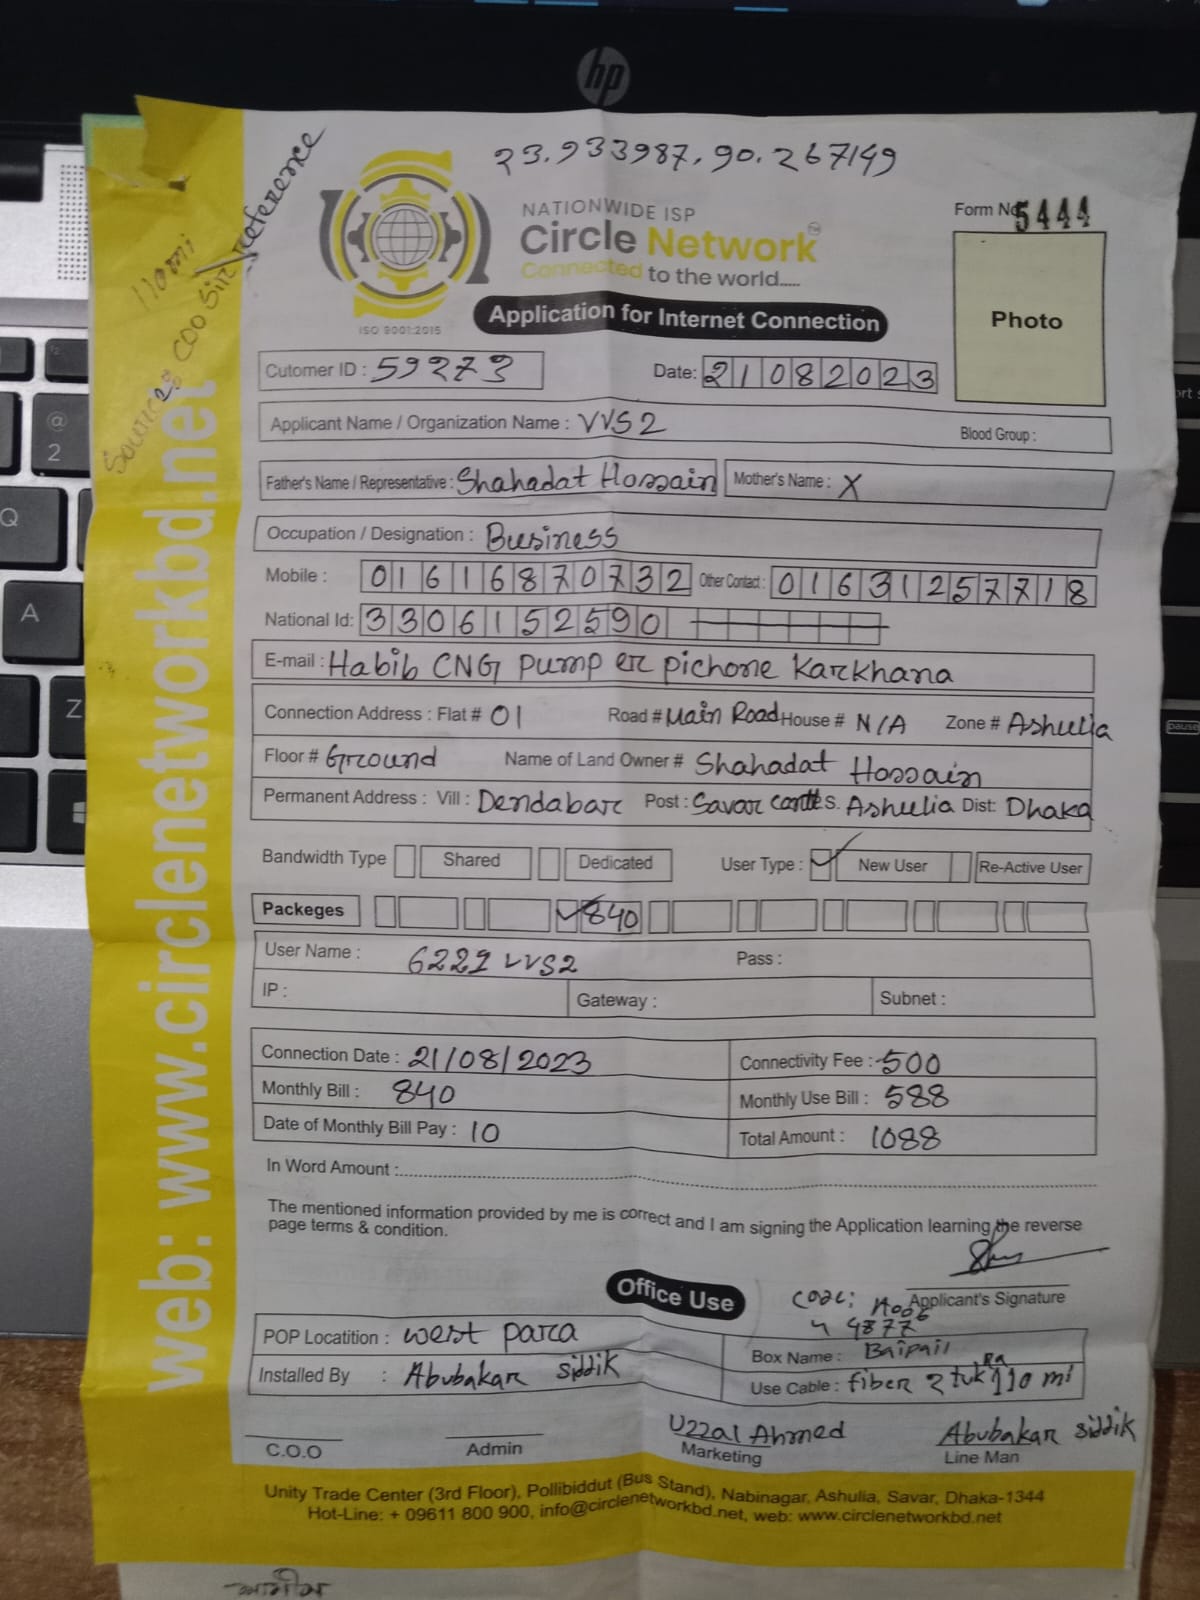 hp
23.933987, 90.267149
110 mi
Source: COO Sir reference
NATIONWIDE ISP
Circle Network
Connected to the world.....
ISO 9001:2015
Form No 5444
Photo
Application for Internet Connection
Cutomer ID : 59273 Date: 21082023
Applicant Name / Organization Name : VVS2 Blood Group :
Father's Name / Representative : Shahadat Hossain Mother's Name : X
Occupation / Designation : Business
Mobile : 01616870732 Other Contact : 01631257718
National Id: 3306152590
E-mail : Habib CNG pump er pichone Karkhana
Connection Address : Flat # 01 Road # Main Road House # N/A Zone # Ashulia
Floor # Ground Name of Land Owner # Shahadat Hossain
Permanent Address : Vill : Dendabar Post : Savar cantt P.S. Ashulia Dist: Dhaka
Bandwidth Type Shared Dedicated User Type : New User Re-Active User
Packeges 840
User Name : 6221 VVS2 Pass :
IP : Gateway : Subnet :
Connection Date : 21/08/2023 Connectivity Fee : 500
Monthly Bill : 840 Monthly Use Bill : 588
Date of Monthly Bill Pay : 10 Total Amount : 1088
In Word Amount :
The mentioned information provided by me is correct and I am signing the Application learning the reverse
page terms & condition.
Applicant's Signature
Office Use
Code:
POP Locatition : west para Box Name : Baipail
Installed By : Abubakar siddik Use Cable : fiber 2 tukra 110 mi
C.O.O Admin Uzzal Ahmed Marketing Abubakar siddik Line Man
Unity Trade Center (3rd Floor), Pollibiddut (Bus Stand), Nabinagar, Ashulia, Savar, Dhaka-1344
Hot-Line: + 09611 800 900, info@circlenetworkbd.net, web: www.circlenetworkbd.net
web: www.circlenetworkbd.net